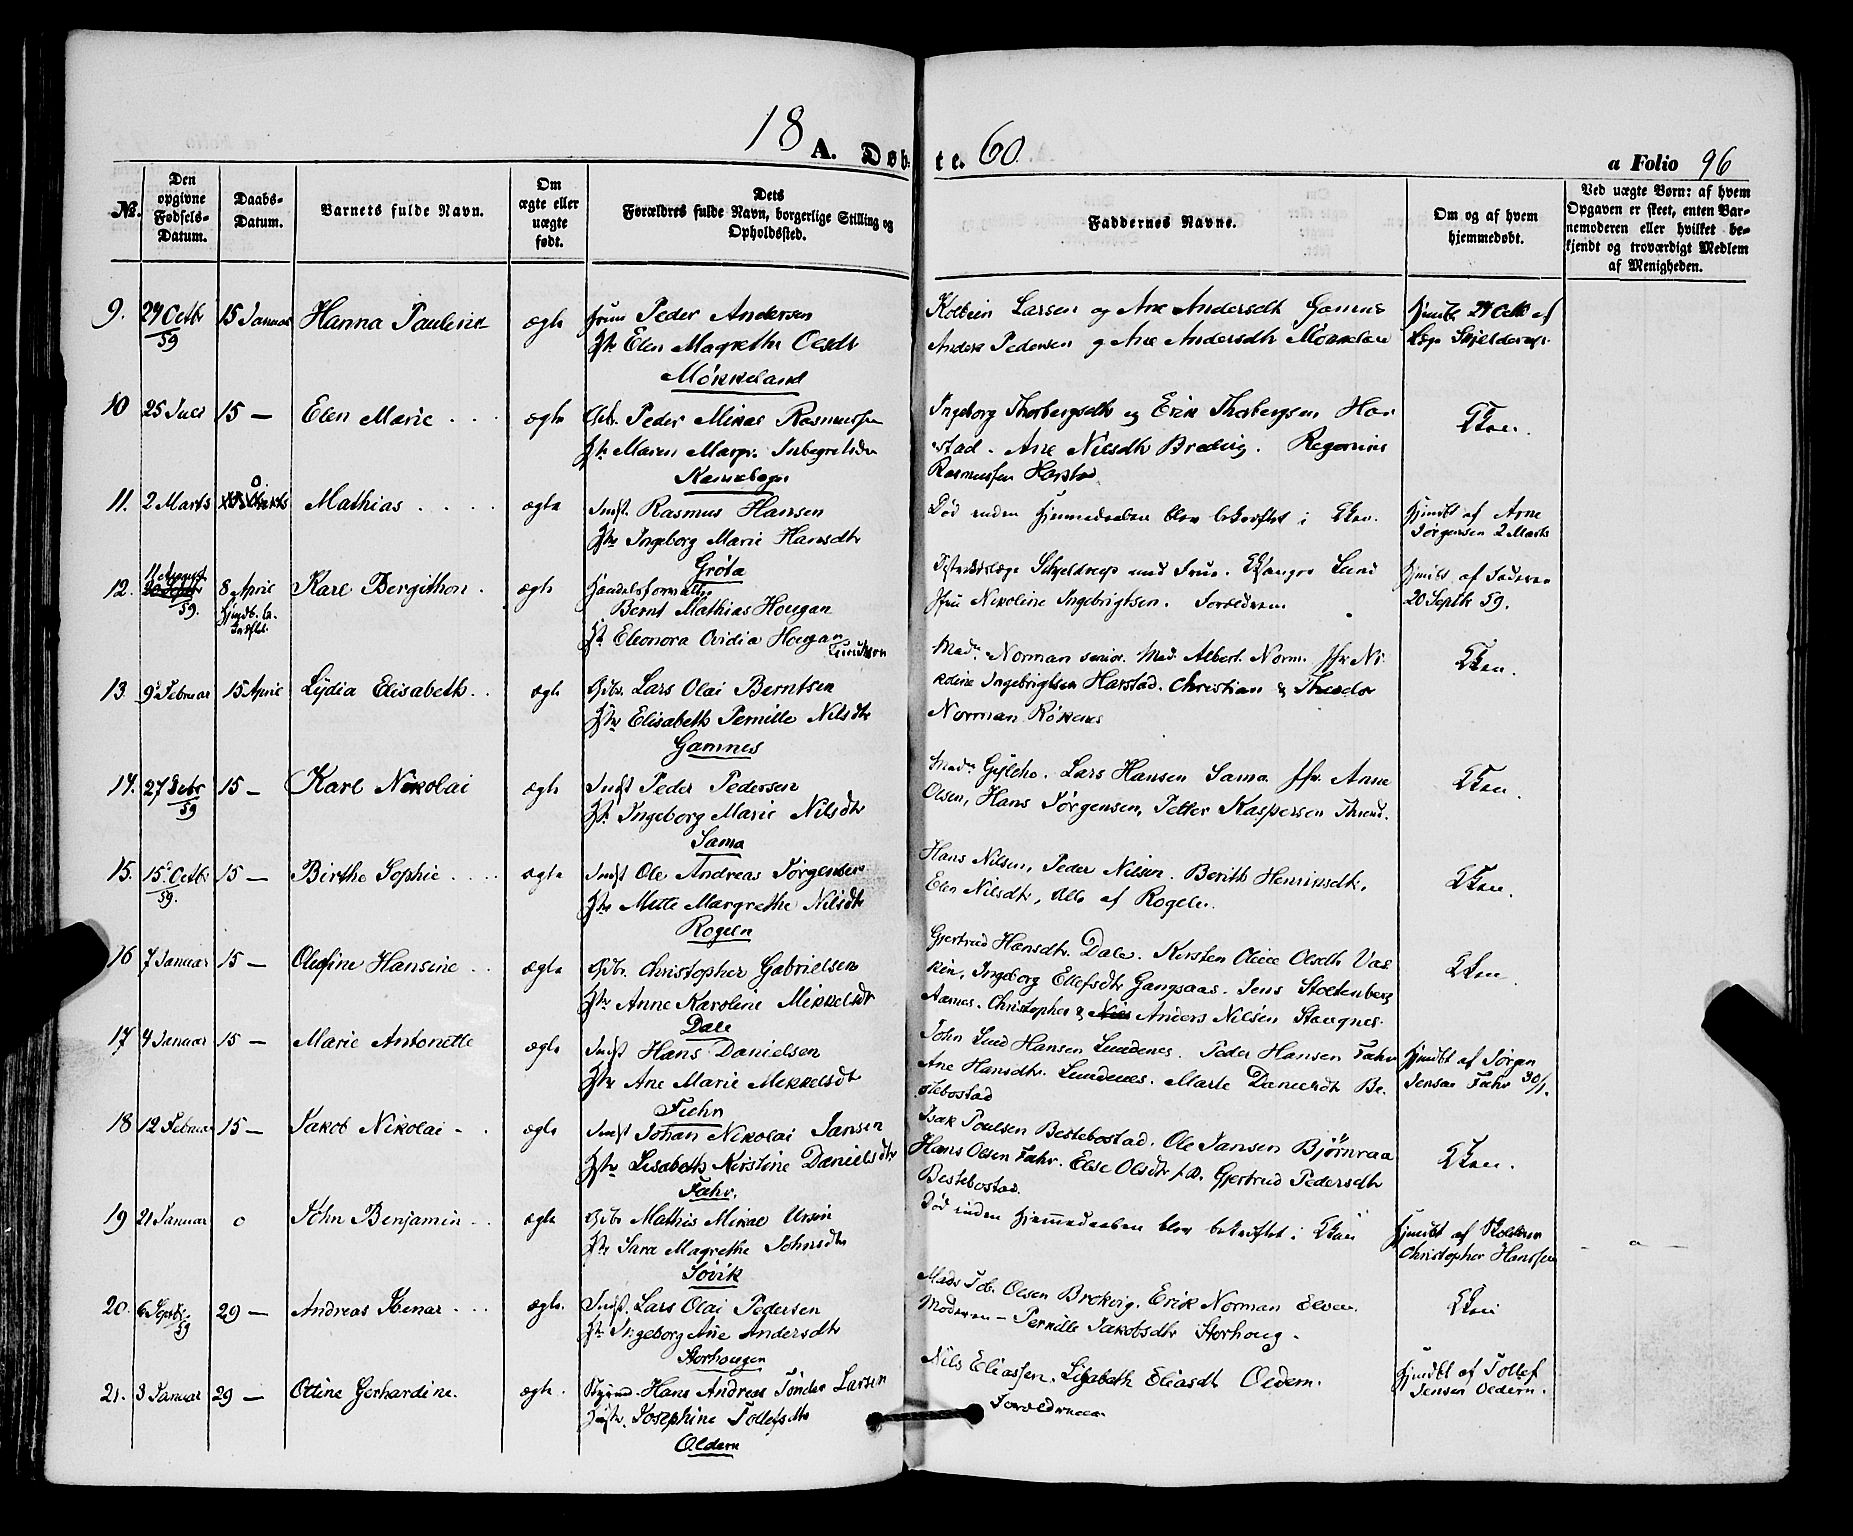 18 A. Døb- te. 60.
a Folio 96
No.
Den opgivne Fødsels-Datum.
Daabs-Datum.
Barnets fulde Navn.
Om ægte eller uægte født.
Dets Forældres fulde Navn, borgerlige Stilling og Opholdssted.
Faddernes Navne.
Om og af hvem hjemmedøbt.
Ved uægte Børn: af hvem Opgaven er skeet, enten Barnemoderen eller hvilket bekjendt og troværdigt Medlem af Menigheden.
9. 24 Octbr 59 15 Januar Hanna Pauline ægte Peder Andersen
Elen Magrethe Olsdtr
Møkkeland
Kolbein Larsen og Ane Andersdtr Gamnes
Anders Pedersen og Ane Andersdtr Møkkeland
10 25 Juli 15 — Elen Marie ægte Peder Mikal Rasmussen
Maren Margr.
Kannebogn
Ingeborg Thorbergsdtr og Erik Thorbergsen Har
stad. Ane Nilsdtr Brekvig.
Rasmussen Harstad
11. 2 Marts 0 Mathias ægte Indst. Rasmus Hansen
Hstr Ingeborg Marie Hansdtr
Grøta
Død inden Hjemmedaaben blev bekræftet i Kken.
Hjmdbt af Arne
Jørgensen 2 Marts
12. 11 August 59. 8 April Karl Bergithon ægte
Bernt Mathias Hougan
Eleonora Ovidia Hougan
Knudsen
Skjeldrup med Frue.
Jfru Nikoline Ingebrigtsen. Forældrene
Hjmdbt af Faderen
20 Septbr 59.
13 9 Februar 15 April Lydia Elisabeth ægte Gbr. Lars Olai Berntsen
Hstr Elisabeth Pernille Nilsdtr
Gamnes
Mad. Norman senior. Mad. Albert. Norm. Jfr Ni
koline Ingebrigtsen Harstad. Christian & Theodor
Norman Røkenes
Kken.
14. 27 Debr 59 15 — Karl Nikolai ægte Indst Peder Pedersen
Hst. Ingeborg Marie Nilsdtr
Sama
Lars Hansen Sama. Jfr. Anne
Olsen, Hans Jørgensen, Petter Kaspersen
Kken.
15. 15 Octbr 59. 15 — Birthe Sophie ægte Indst Ole Andreas Jørgensen
Hstr Mette Margrethe Nilsdtr
Rogeln
Hans Nilsen, Peder Nilsen. Berith Henriksdtr,
Elen Nilsdtr, Alle af Rogeln.
Kken.
16 7 Januar 15 — Olefine Hansine ægte Gbr. Christopher Gabrielsen
Hstr Anne Karoline Mikkelsdtr
Dale
Gjertrud Hansdtr Dale. Kirsten Olsdtr Vas
kin, Ingeborg Ellefsdtr Gangsaas. Jens Stoltenberg
Aarnes. Christopher & Anders Nilsen Stangnes.
Kken.
17 4 Januar 15 — Marie Antonette ægte Indst Hans Danielsen
Hstr Ane Marie Mikkelsdtr
Fuehr
John Lind Hansen Lundenes. Peder Hansen Fahr
Ane Hansdtr. Lundenes. Marte Be
stebostad
Hjmdbt af Jørgen
Jensen Fahr 30/1.
18 12 Februar 15 — Jakob Nikolai ægte Indst Johan Nikolai Jansen
Hstr Lisabeth Kirstine Danielsdtr
Fahr.
Isak Poulsen Bestebostad. Ole Jansen Bjørnraa
Hans Olsen Fahr. Else Olsdtr Gjertrud Pedersdtr
Bestebostad.
Kken.
19 21 Januar 0 John Benjamin ægte Gbr Mathis Mikal Ursin
Sara Magrethe Johnsdtr
Søvik
Død inden Hjemmedaaben blev bekræftet i Kken
Hjmdbt af
Christopher Hanssen
20. 6 Septbr 59 29 — Andreas Ibenar ægte. Indst. Lars Olai Pedersen
Ingeborg Ane Andersdtr
Storhougen
Mads Tob. Olsen Brekvig. Erik Norman
Moderen — Pernille Jakobsdtr Storhoug.
Kken
21. 3 Januar 29 — Otine Gerhardine. ægte. Hans Andreas Tønder Larsen
Hustr. Josephine Tollefsdtr
Oldern
Nils Eliassen. Lisabeth Eliasdtr Oldern.
Forældrene
Hjmdbt af Tollef
Jensen Oldern.